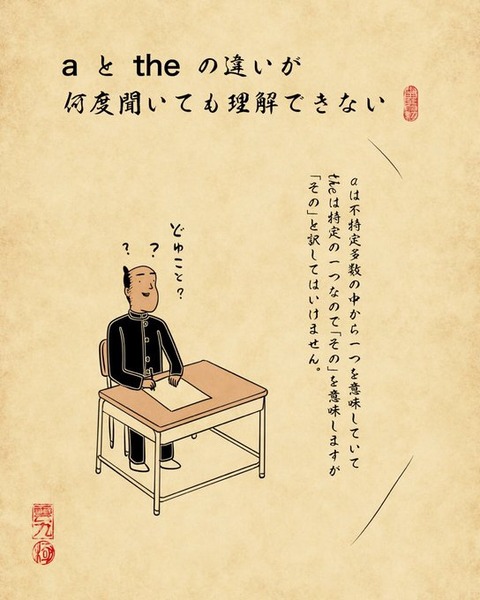 a と the の違いが
何度聞いても理解できない
aは不特定多数の中から一つを意味していて
theは特定の一つなので「その」を意味しますが
「その」と訳してはいけません。
どゆこと?
? ?